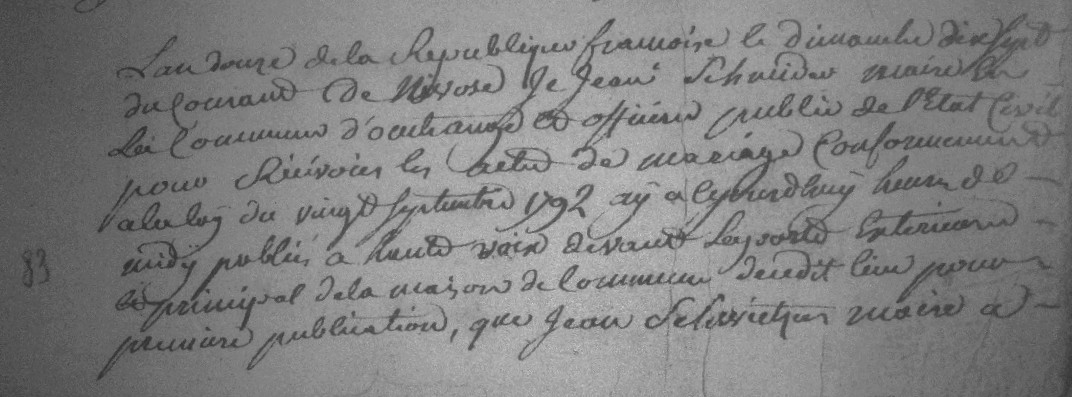 L'an douze de la Republique francoise le dimanche dix Sept
du Courant de Nivose Je Jean Schneider maire de
La Commune d'ocutrange et officier public de l'Etat Civil
pour Récévoir les actes de mariage Conformement
a la loÿ du vingt Septembre 1792 aÿ a Cejourdhuÿ heure de
midÿ publié a haute voix devant la porte Exterieure
et principal de la maison de Commune dudit lieu pour
premiere publication, que Jean maire a
83